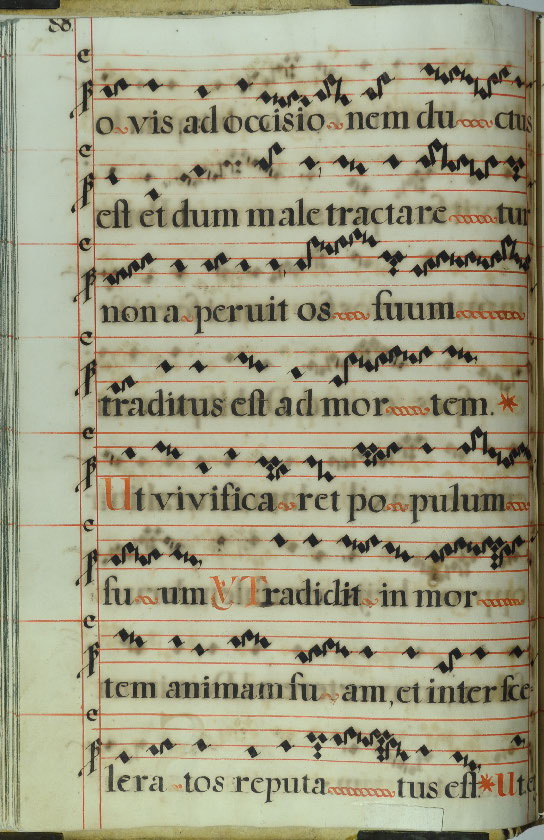 88.
o vis ad occisio nem du ctus
est et dum male tractare tur
non a peruit os suum
traditus est ad mor tem. *
Ut vivifica ret po pulum
su um V Tradidit in mor
tem animam su am, et inter sce
lera tos reputa tus est. * Ut.